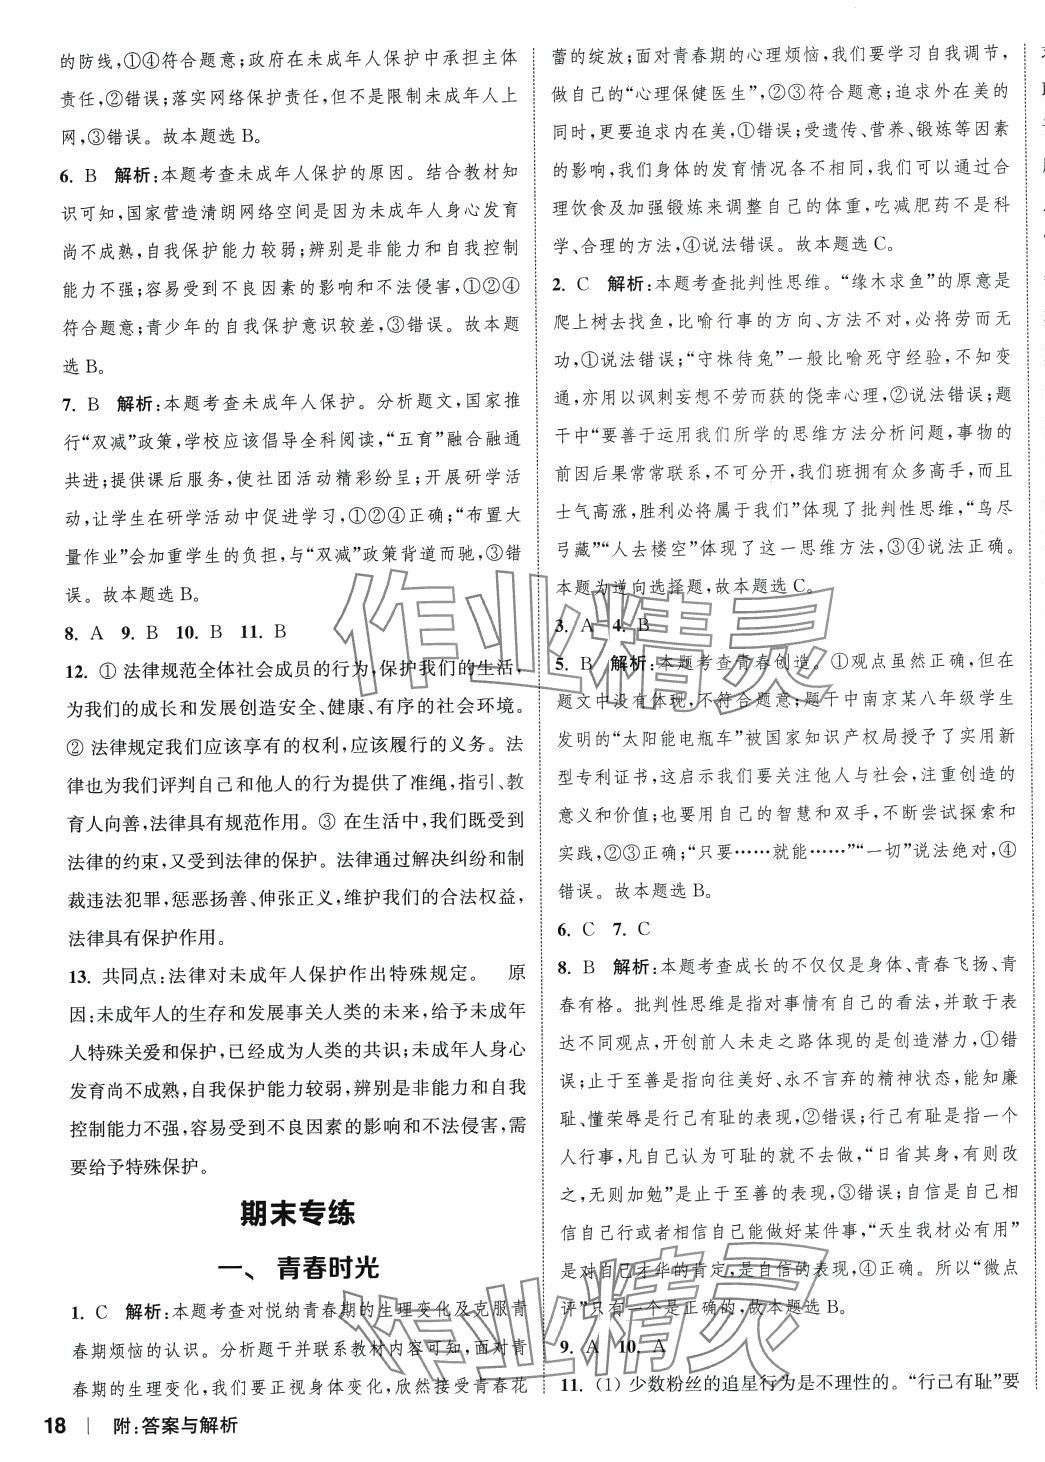 的防线,①④符合题意;政府在未成年人保护中承担主体
责任,②错误;落实网络保护责任,但不是限制未成年人上
网,③错误。故本题选 B。
6. B 解析:本题考查未成年人保护的原因。结合教材知
识可知,国家营造清朗网络空间是因为未成年人身心发育
尚不成熟,自我保护能力较弱;辨别是非能力和自我控制
能力不强;容易受到不良因素的影响和不法侵害,①②④
符合题意;青少年的自我保护意识较差,③错误。故本题
选 B。
7. B 解析:本题考查未成年人保护。分析题文,国家推
行“双减”政策,学校应该倡导全科阅读,“五育”融合融通
共进;提供课后服务,使社团活动精彩纷呈;开展研学活
动,让学生在研学活动中促进学习,①②④正确;“布置大
量作业”会加重学生的负担,与“双减”政策背道而驰,③错
误。故本题选 B。
8. A 9. B 10. B 11. B
12. ① 法律规范全体社会成员的行为,保护我们的生活,
为我们的成长和发展创造安全、健康、有序的社会环境。
② 法律规定我们应该享有的权利,应该履行的义务。法
律也为我们评判自己和他人的行为提供了准绳,指引、教
育人向善,法律具有规范作用。③ 在生活中,我们既受到
法律的约束,又受到法律的保护。法律通过解决纠纷和制
裁违法犯罪,惩恶扬善、伸张正义,维护我们的合法权益,
法律具有保护作用。
13. 共同点:法律对未成年人保护作出特殊规定。 原
因:未成年人的生存和发展事关人类的未来,给予未成年
人特殊关爱和保护,已经成为人类的共识;未成年人身心
发育尚不成熟,自我保护能力较弱,辨别是非能力和自我
控制能力不强,容易受到不良因素的影响和不法侵害,需
要给予特殊保护。
期末专练
一、青春时光
1. C 解析:本题考查对悦纳青春期的生理变化及克服青
春期烦恼的认识。分析题干并联系教材内容可知,面对青
春期的生理变化,我们要正视身体变化,欣然接受青春花
蕾的绽放;面对青春期的心理烦恼,我们要学习自我调节,
做自己的“心理保健医生”,②③符合题意;追求外在美的
同时,更要追求内在美,①错误;受遗传、营养、锻炼等因素
的影响,我们身体的发育情况各不相同,我们可以通过合
理饮食及加强锻炼来调整自己的体重,吃减肥药不是科
学、合理的方法,④说法错误。故本题选 C。
2. C 解析:本题考查批判性思维。“缘木求鱼”的原意是
爬上树去找鱼,比喻行事的方向、方法不对,必将劳而无
功,①说法错误;“守株待兔”一般比喻死守经验,不知变
通,亦用以讽刺妄想不劳而获的侥幸心理,②说法错误;题
干中“要善于运用我们所学的思维方法分析问题,事物的
前因后果常常联系,不可分开,我们班拥有众多高手,而且
士气高涨,胜利必将属于我们”体现了批判性思维,“鸟尽
弓藏”“人去楼空”体现了这一思维方法,③④说法正确。
本题为逆向选择题,故本题选 C。
3. A 4. B
5. B 解析:本题考查青春创造。①观点虽然正确,但在
题文中没有体现,不符合题意;题干中南京某八年级学生
发明的“太阳能电瓶车”被国家知识产权局授予了实用新
型专利证书,这启示我们要关注他人与社会,注重创造的
意义和价值;也要用自己的智慧和双手,不断尝试探索和
实践,②③正确;“只要……就能……”“一切”说法绝对,④
错误。故本题选 B。
6. C 7. C
8. B 解析:本题考查成长的不仅仅是身体、青春飞扬、青
春有格。批判性思维是指对事情有自己的看法,并敢于表
达不同观点,开创前人未走之路体现的是创造潜力,①错
误;止于至善是指向往美好、永不言弃的精神状态,能知廉
耻、懂荣辱是行己有耻的表现,②错误;行己有耻是指一个
人行事,凡自己认为可耻的就不去做,“日省其身,有则改
之,无则加勉”是止于至善的表现,③错误;自信是自己相
信自己行或者相信自己能做好某件事,“天生我材必有用”
是对自己才华的肯定,是自信的表现,④正确。所以“微点
评”只有一个是正确的,故本题选 B。
9. A 10. A
11. (1) 少数粉丝的追星行为是不理性的。“行己有耻”要
18 | 附:答案与解析
作业精灵
作业精灵